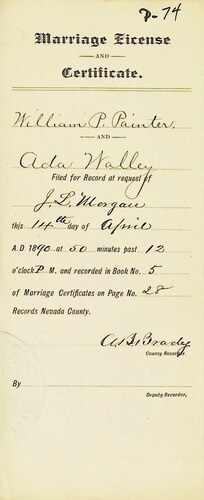 P-74
Marriage License
AND
Certificate.
William P. Painter.
AND
Ada Walley
Filed for Record at request of
J. L. Morgan
this 14th day of April
A.D 1890 at 50 minutes past 12
o'clock P. M. and recorded in Book No. 5
of Marriage Certificates on Page No. 28
Records Nevada County.
A.B. Brady
County Recorder.
By
Deputy Recorder,